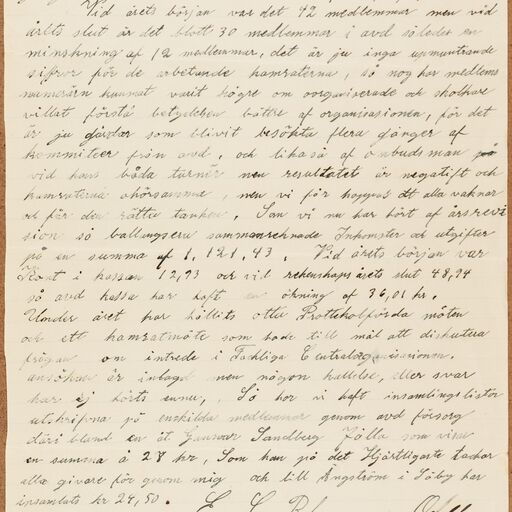 Vid årets början var det 42 medlemmar men vid
årets slut är det blott 30 medlemmar i avd således en
minskning af 12 medlemmar, det är ju inga upmuntrande
sifror för de arbetande kamraterna, så nog har medlems
numerärn kunnat varit högre om oorganiserade och skolkare
villat förstå betydelsen bättre af organisasionen, för det
är ju gårdar som blivit besökta flera gånger af
kommiteer från avd, och likaså af onbudsman på
vid hans båda turner men resultatet är negatift och
kamraterna ohörsamme, men vi får hoppas att alla vaknar
och får den rätta tanken. Som vi nu har hört af årsrevi
sion så ballangsera sammanreknade Inkomster och utgifter
på en summa af 1,121,43. Vid årets början var
i kassan 12,93 och vid rekenskapsårets slut 48,94
så avd kassa har haft en ökning af 36,01 kr.
Under året har hållits otta Prottokolförda möten
och ett kamratmöte som hade till mål att diskutera
frågan om intrede i Fakliga Centralorganisasionen.
ansökan är inlagd men någon kallelse, eller svar
har ej hörts ennu. Så har vi haft insamlingslistor
utskrifna på enskilda medlemmar genom avd försorg
däribland en åt Gunnar Sandberg Jälla som visar
en summa å 28 kr, Som han på det Hjärtligaste tackar
alla givare för genom mig och till Ångström i Säby har
insamlats kr 24,50.